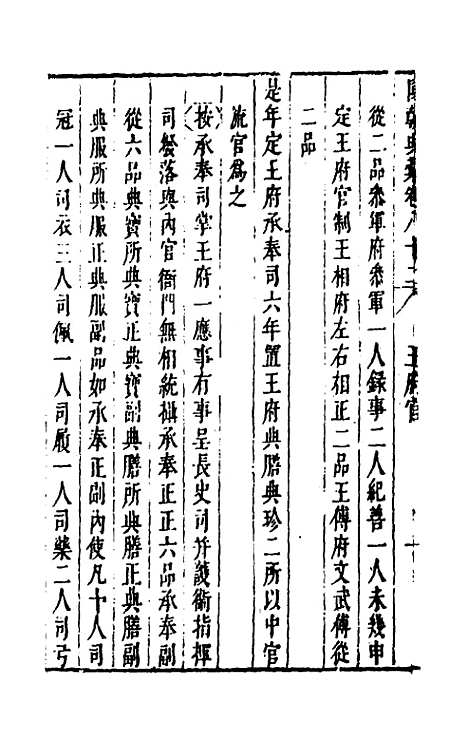 國朝典彙卷八十二 王府官
從二品叅軍府叅軍一人録事二人紀善一人未幾申
定王府官制王相府左右相正二品王傅府文武傅從
二品
是年定王府承奉司六年置王府典膳典珍二所以中官
流官爲之
按承奉司掌王府一應事有事呈長史司并護衛指揮
司發落與内官衙門無相統攝承奉正正六品承奉副
從六品典寶所典寶正典寶副典膳所典膳正典膳副
典服所典服正典服副品如承奉正副内使凡十人司
冠一人司衣三人司佩一人司履一人司藥二人司弓